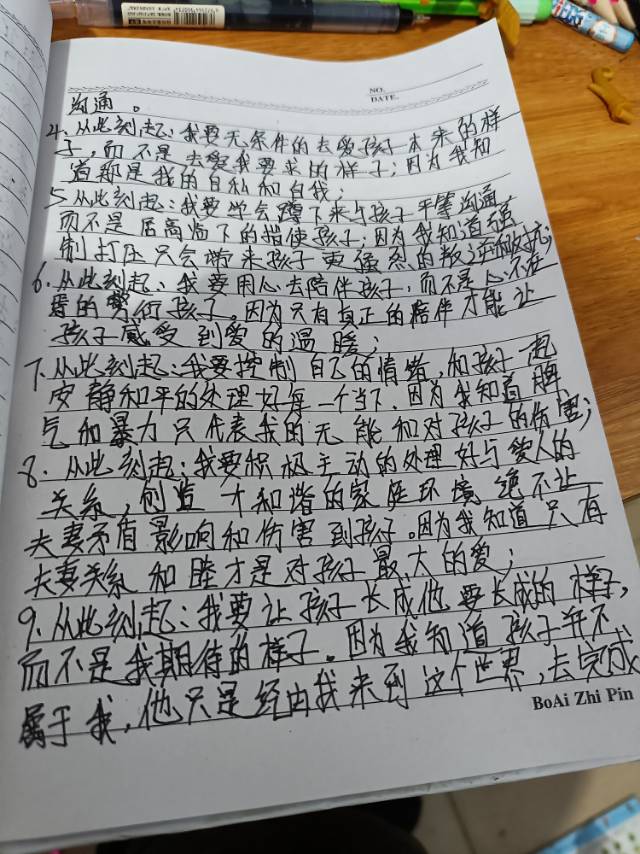 NO.
DATE.
沟通。
4、从此刻起：我要无条件的去爱孩子本来的样
子，而不是去爱我要求的样子；因为我知
道那是我的自私和自我；
5从此刻起：我要学会蹲下来与孩子平等沟通，
而不是居高临下的指使孩子；因为我知道强
制打压只会带来孩子更强烈的叛逆和对抗；
6、从此刻起、我要用心去陪伴孩子，而不是心不在
焉的敷衍孩子。因为只有真正的陪伴才能让
孩子感受到爱的温暖；
7、从此刻起：我要控制自己的情绪，和孩子一起
安静和平的处理好每一个当下，因为我知道脾
气和暴力只代表我的无能和对孩子的伤害；
8、从此刻起：我要积极主动的处理好与爱人的
关系，创造才和谐的家庭环境绝不让
夫妻矛盾影响和伤害到孩子。因为我知道只有
夫妻关系和睦才是对孩子最大的爱；
9、从此刻起：我要让孩子长成他要长成的样子，
而不是我期待的样子。因为我知道孩子并不
属于我，他只是经由我来到这个世界，去完成
BoAi Zhi Pin